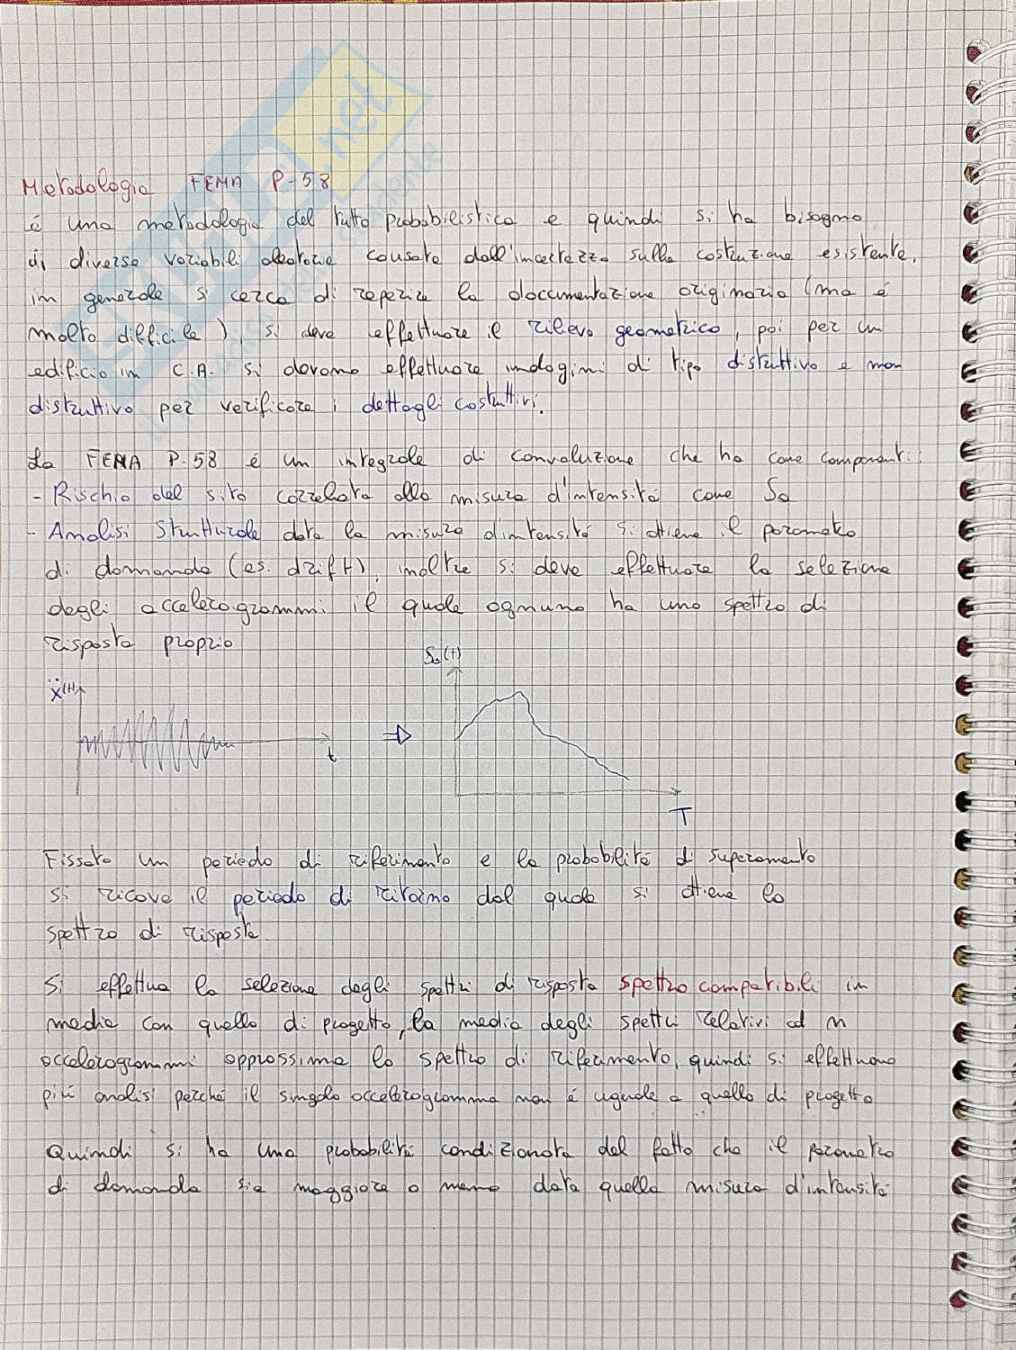 Metodologia FEMA P-58
é una metodologia del tutto probabilistica e quindi si ha bisogno
di diverse variabili aleatorie causate dall'incertezza sulla costruzione esistente.
in generale si cerca di reperire la documentazione originaria (ma é
molto difficile), si deve effettuare il rilievo geometrico, poi per un
edificio in C.A. si devono effettuare indagini di tipo distruttivo e non
distruttivo per verificare i dettagli costruttivi.
La FEMA P-58 é un integrale di convoluzione che ha come componenti:
- Rischio del sito correlato alla misura d'intensità come Sa
- Analisi Strutturale data la misura d'intensità si ottiene il parametro
di domanda (es. drift), inoltre si deve effettuare la selezione
degli accelerogrammi il quale ognuno ha uno spettro di
risposta proprio
Sa(t)
ẍ(t)
t
T
Fissato un periodo di riferimento e la probabilità di superamento
si ricava il periodo di ritorno dal quale si ottiene lo
spettro di risposta
Si effettua la selezione degli spettri di risposta spettrocompatibili in
media con quello di progetto, la media degli spettri relativi ad n
accelerogrammi approssima lo spettro di riferimento, quindi si effettuano
più analisi perché il singolo accelerogramma non é uguale a quello di progetto
Quindi si ha una probabilità condizionata dal fatto che il parametro
di domanda sia maggiore o meno data quella misura d'intensità
.net